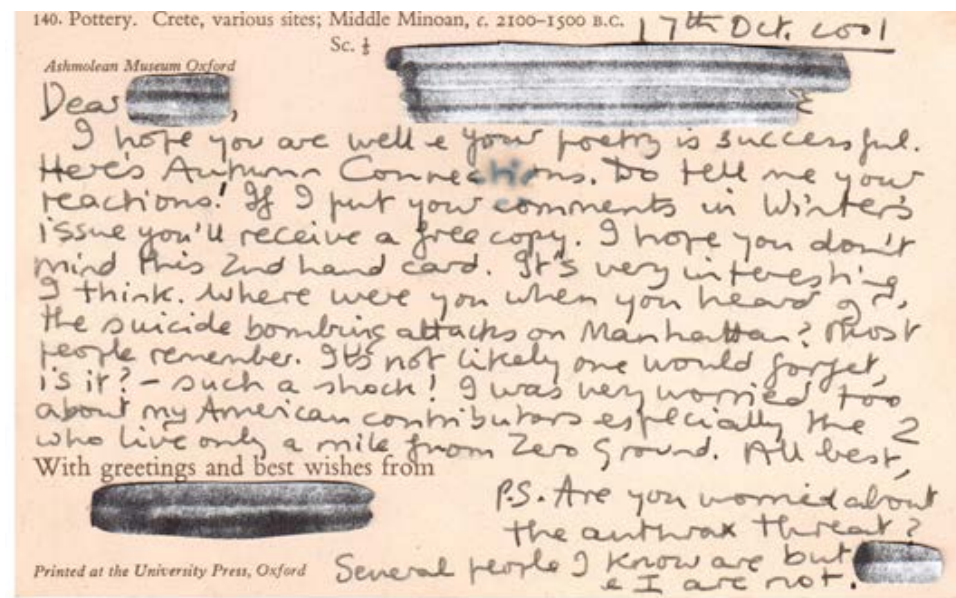 140. Pottery. Crete, various sites; Middle Minoan, c. 2100–1500 B.C.
Sc. ⅓
17th Oct. 2001
Ashmolean Museum Oxford
Dear ,
I hope you are well & your poetry is successful.
Here's Autumn Connections. Do tell me your
reactions! If I put your comments in Winter's
issue you'll receive a free copy. I hope you don't
mind this 2nd hand card. It's very interesting,
I think. Where were you when you heard of
the suicide bombing attacks on Manhattan? Most
people remember. It's not likely one would forget,
is it? – such a shock! I was very worried too
about my American contributors especially the 2
who live only a mile from Zero Ground. All best,
With greetings and best wishes from
P.S. Are you worried about
the anthrax threat?
Several people I know are but
& I are not.
Printed at the University Press, Oxford